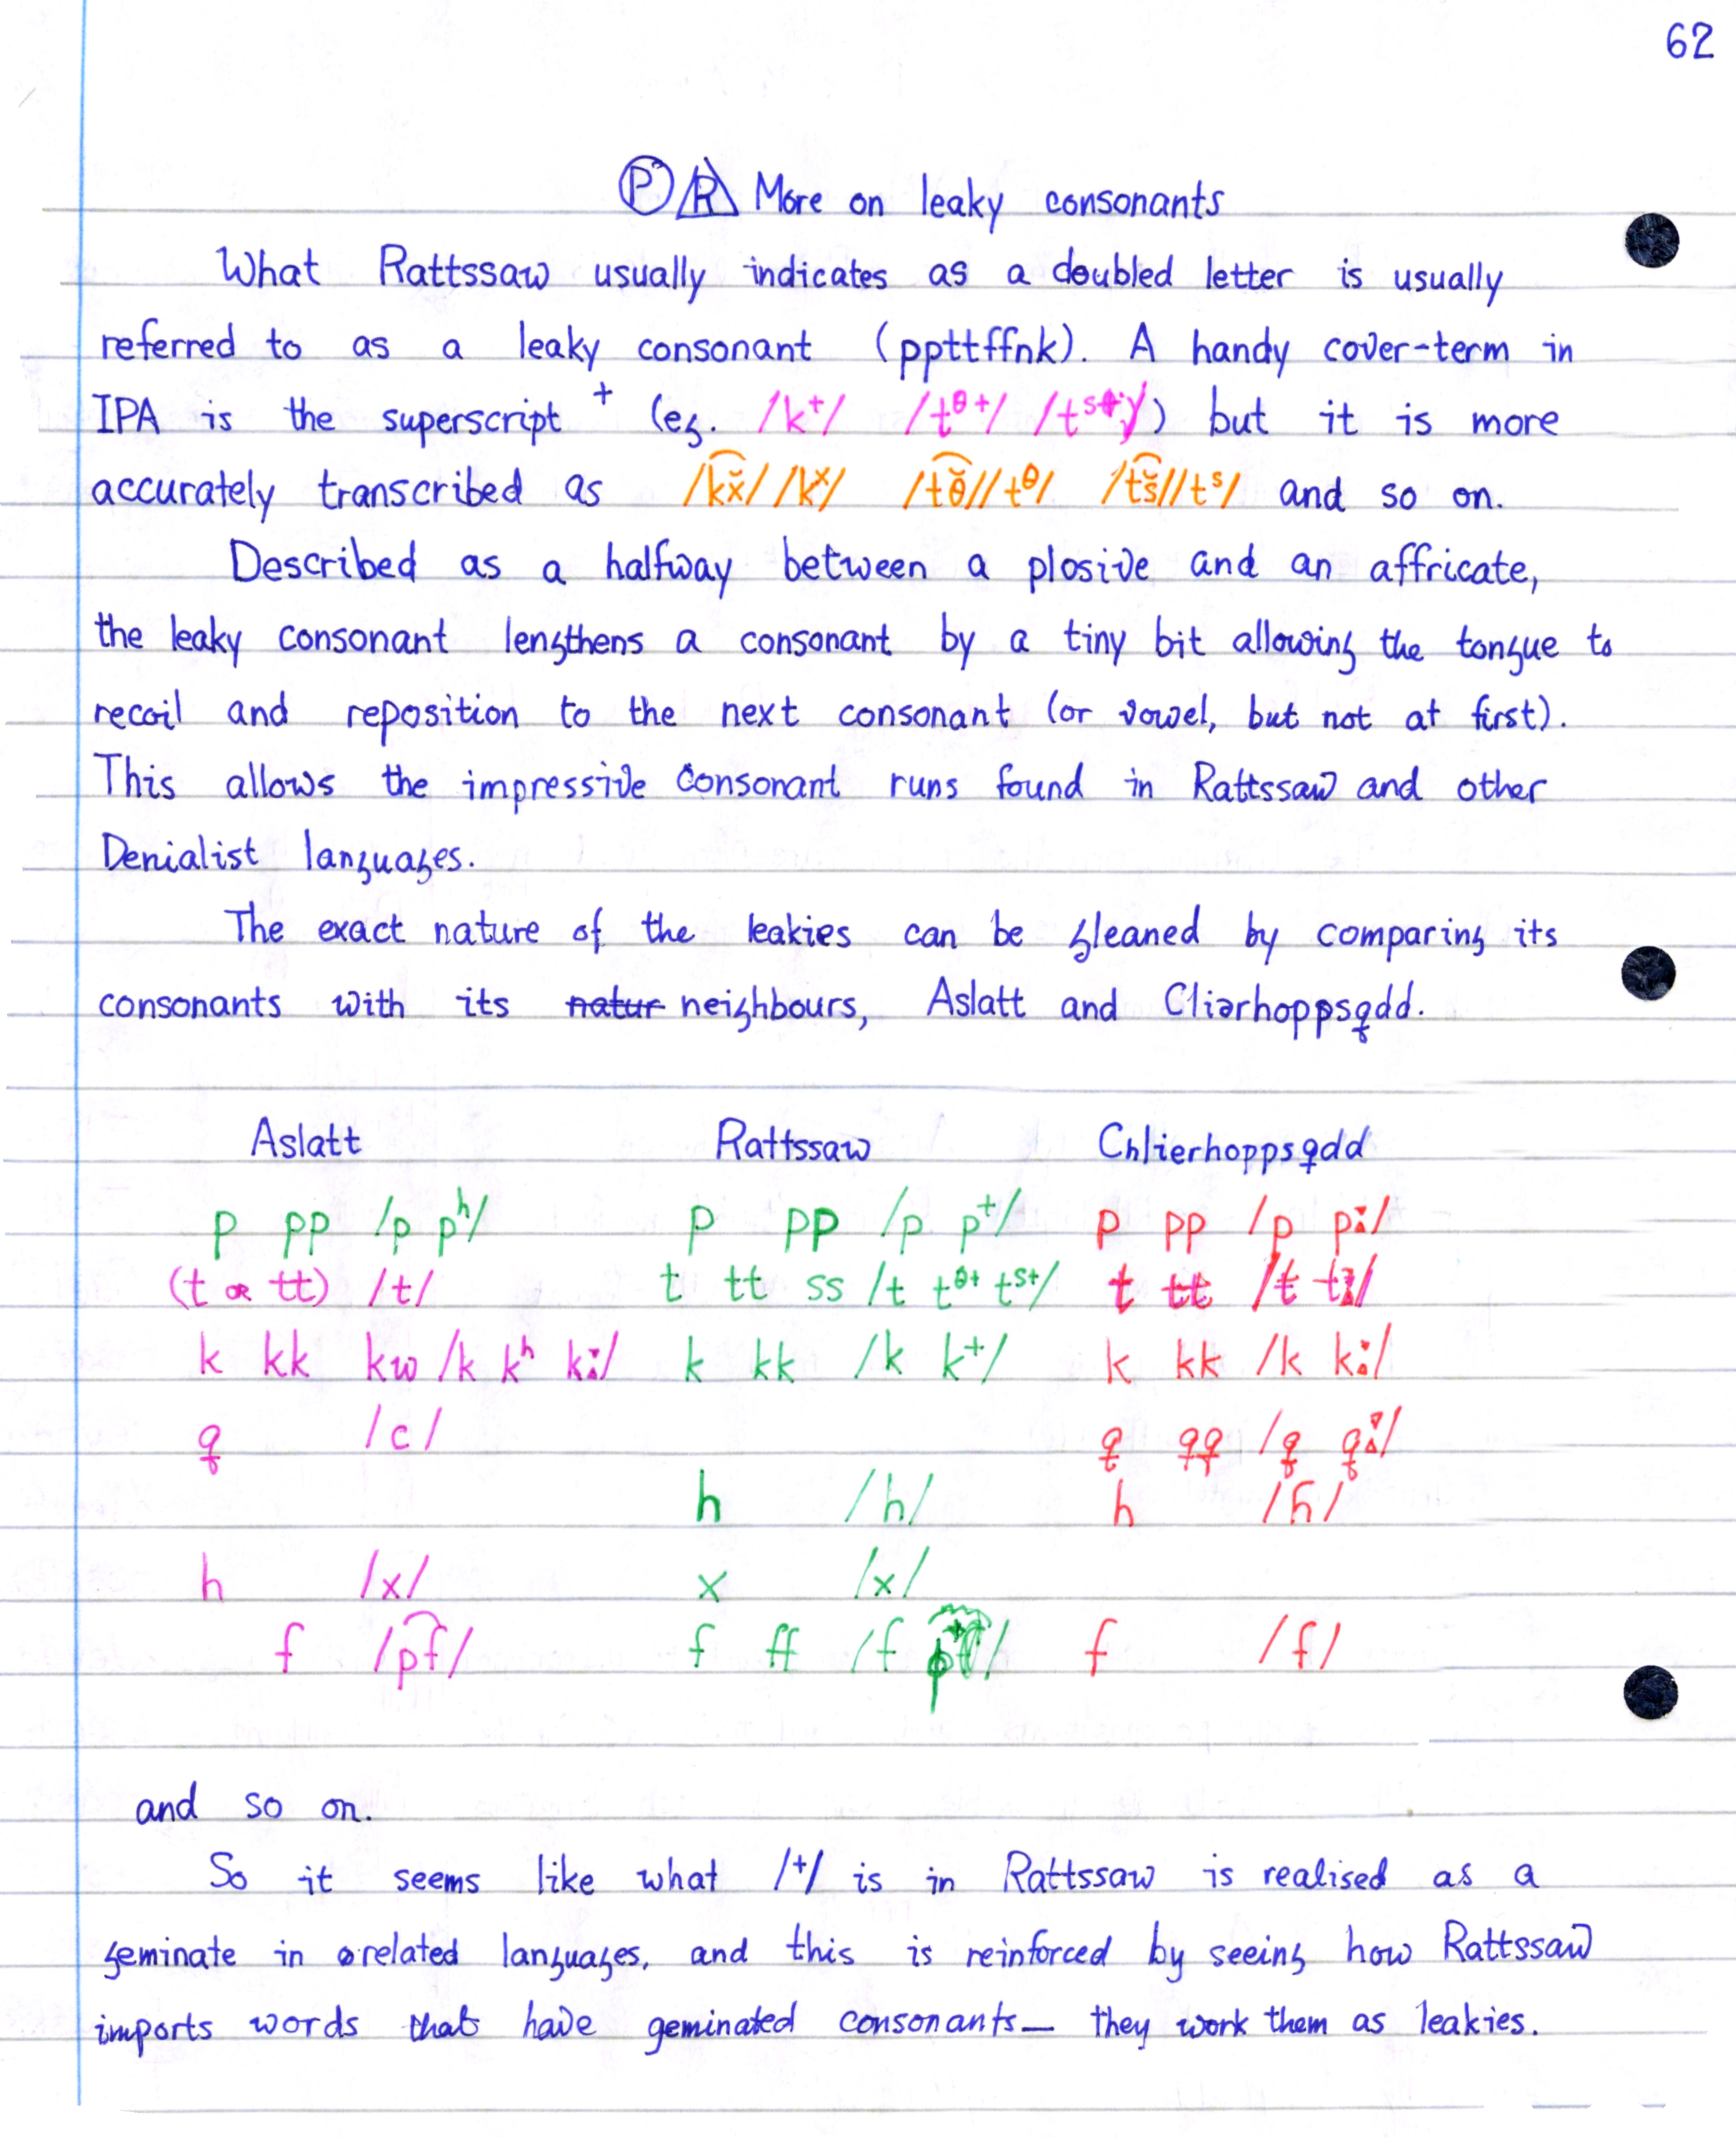 62
Ⓟ R More on leaky consonants
What Rattssaw usually indicates as a doubled letter is usually
referred to as a leaky consonant (ppttffnk). A handy cover-term in
IPA is the superscript ⁺ (eg. /k⁺/ /tᶿ⁺/ /tˢ⁺/) but it is more
accurately transcribed as /k͡x̆/ /kˣ/ /t͡θ̆/ /tᶿ/ /t͡s̆/ /tˢ/ and so on.
Described as a halfway between a plosive and an affricate,
the leaky consonant lengthens a consonant by a tiny bit allowing the tongue to
recoil and reposition to the next consonant (or vowel, but not at first).
This allows the impressive consonant runs found in Rattssaw and other
Denialist languages.
The exact nature of the leakies can be gleaned by comparing its
consonants with its natur neighbours, Aslatt and Cliərhoppsqdd.
Aslatt Rattssaw Chlierhoppsqdd
p pp /p pʰ/ p pp /p p⁺/ p pp /p pː/
(t or tt) /t/ t tt ss /t tᶿ⁺ tˢ⁺/ t tt /t tː/
k kk kw /k kʰ kː/ k kk /k k⁺/ k kk /k kː/
q /c/ q qq /q qː/
h /h/ h /ɦ/
h /x/ x /x/
f /p͡f/ f ff /f f /f/
and so on.
So it seems like what /⁺/ is in Rattssaw is realised as a
geminate in related languages, and this is reinforced by seeing how Rattssaw
imports words that have geminated consonants — they work them as leakies.